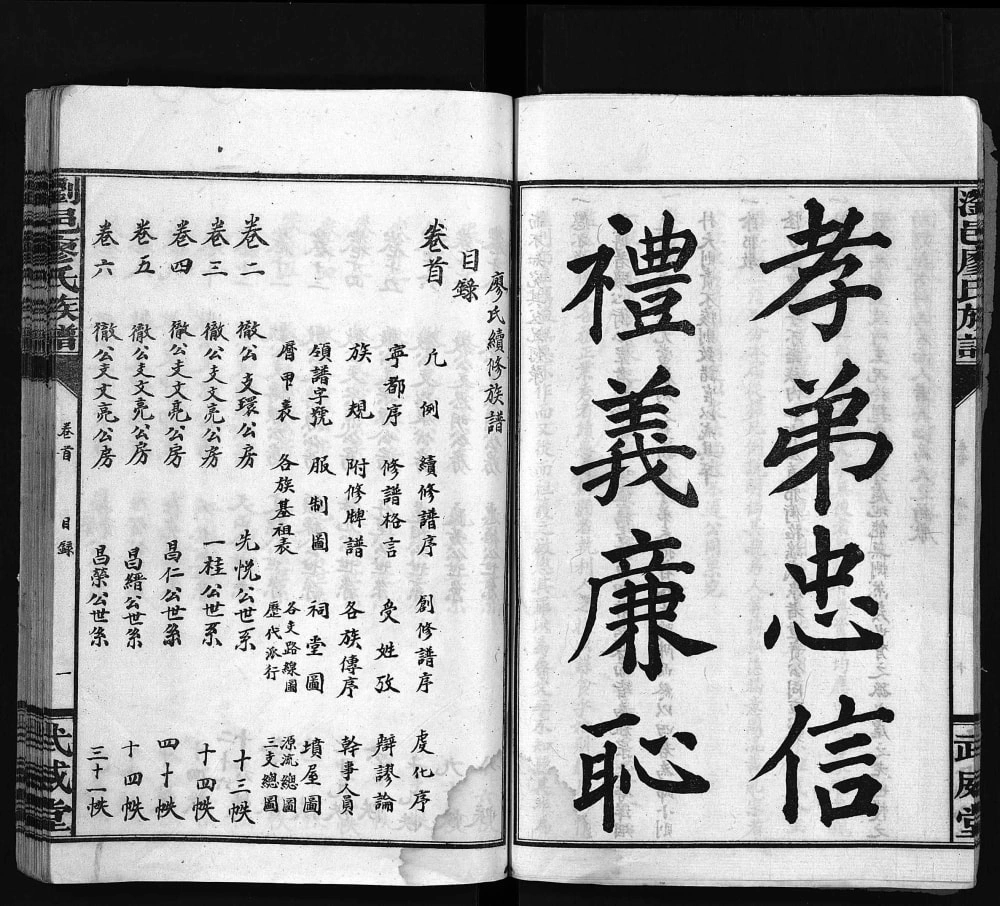 瀏邑廖氏族譜
武威堂
孝弟忠信
禮義廉恥
廖氏續修族譜
目錄
卷首
凡例 續修譜序 創修譜序 虔化序
寧都序 修譜格言 受姓攷 辯謬論
族規 附修牌譜 各族傳序 幹事人員
領譜字號 服制圖 祠堂圖 墳屋圖
曆甲表 各族基祖表 各支路線圖 歷代派行 源流總圖 三支總圖
卷二 徹公支環公房 先悅公世系 十三帙
卷三 徹公支文亮公房 一桂公世系 十四帙
卷四 徹公支文亮公房 昌仁公世系 四十帙
卷五 徹公支文亮公房 昌縉公世系 十四帙
卷六 徹公支文亮公房 昌榮公世系 三十一帙
瀏邑廖氏族譜
卷首 目錄 一
武威堂